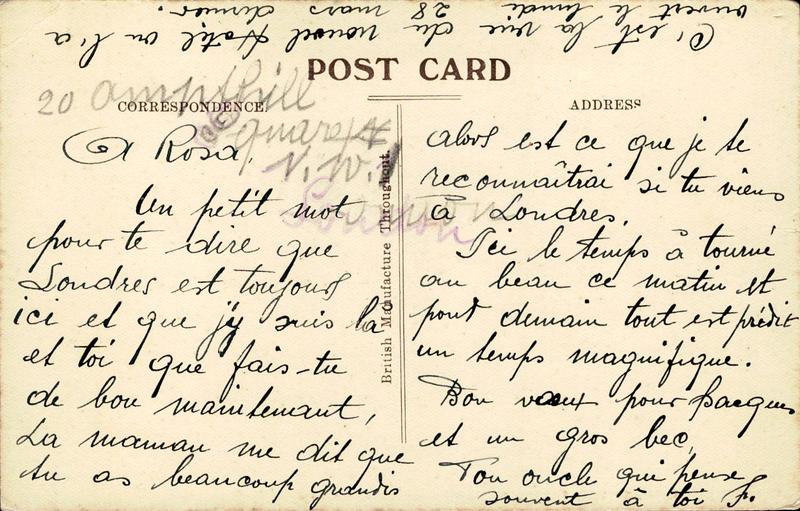 C'est la vue du nouvel Hotel on l'a
ouvert le lundi 28 mars dernier.
POST CARD
20 Ampthill
Square
N.W.1
London
CORRESPONDENCE
ADDRESS
British Manufacture Throughout.
A Rosa,
Un petit mot
pour te dire que
Londres est toujours
ici et que j'y suis là
et toi que fais-tu
de bon maintenant,
La maman me dit que
tu as beaucoup grandis
alors est ce que je te
reconnaîtrai si tu viens
à Londres,
Ici le temps à tourné
au beau ce matin et
pour demain tout est prédit
un temps magnifique.
Bon vœux pour Jacques
et un gros bec,
Ton oncle qui pense
souvent à toi F.